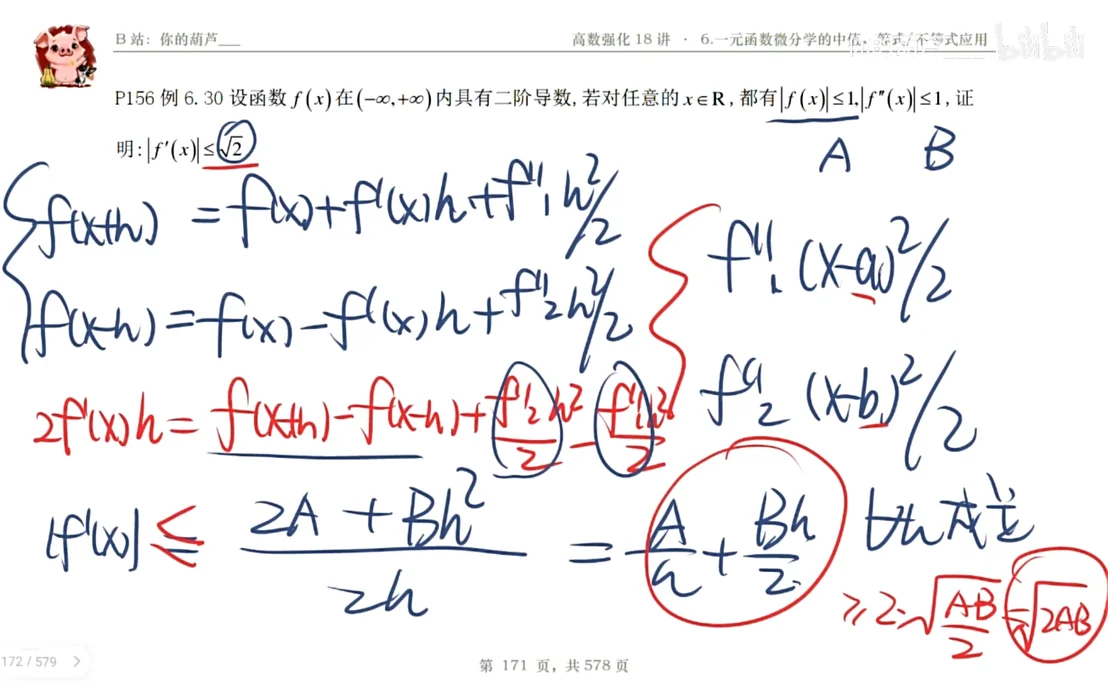 B 站：你的葫芦___ 高数强化 18 讲 · 6.一元函数微分学的中值、等式/不等式应用
bilibili
P156 例 6.30 设函数 f(x) 在 (-∞,+∞) 内具有二阶导数, 若对任意的 x∈R, 都有|f(x)|≤1,|f″(x)|≤1, 证
明: |f′(x)|≤√2
A B
f(x+h) = f(x)+f'(x)h+f''₁h²/2
f''₁(x-a)²/2
f(x-h)=f(x)-f'(x)h+f''₂h²/2
f''₂(x-b)²/2
2f'(x)h=f(x+h)-f(x-h)+f''₂h²/2-f''₁h²/2
|f'(x)| ≤ (2A+Bh²)/2h = A/h + Bh/2 ∀h成立
≥2·√(AB/2)=√(2AB)
172 / 579 >
第 171 页，共 578 页